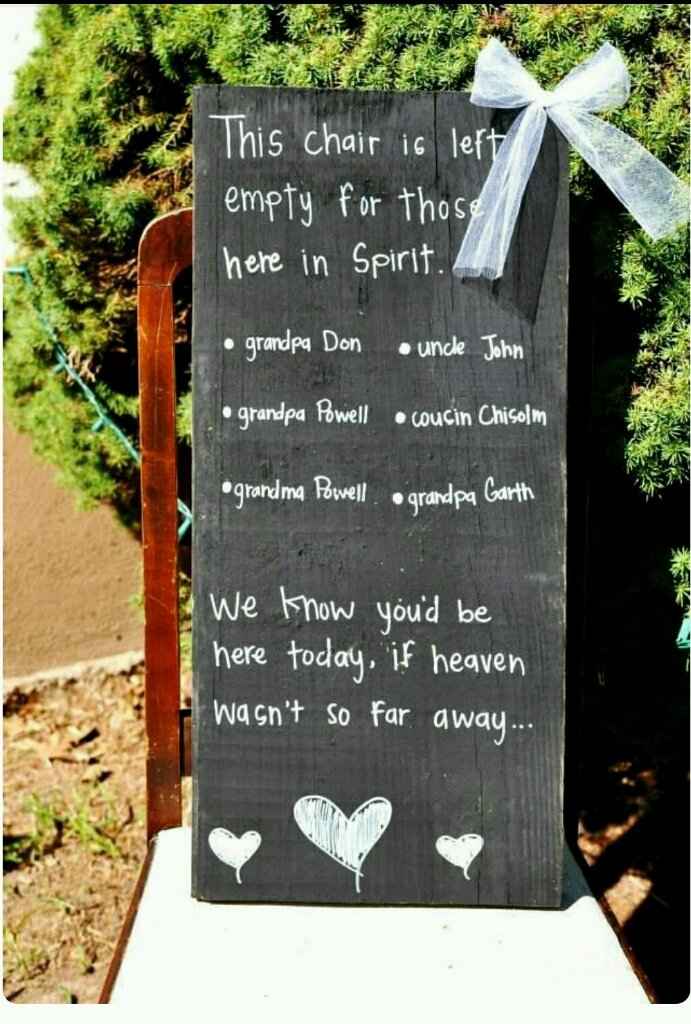 This chair is left
empty for those
here in Spirit.
• grandpa Don • uncle John
• grandpa Powell • cousin Chisolm
• grandma Powell • grandpa Garth
We know you'd be
here today, if heaven
wasn't so far away...